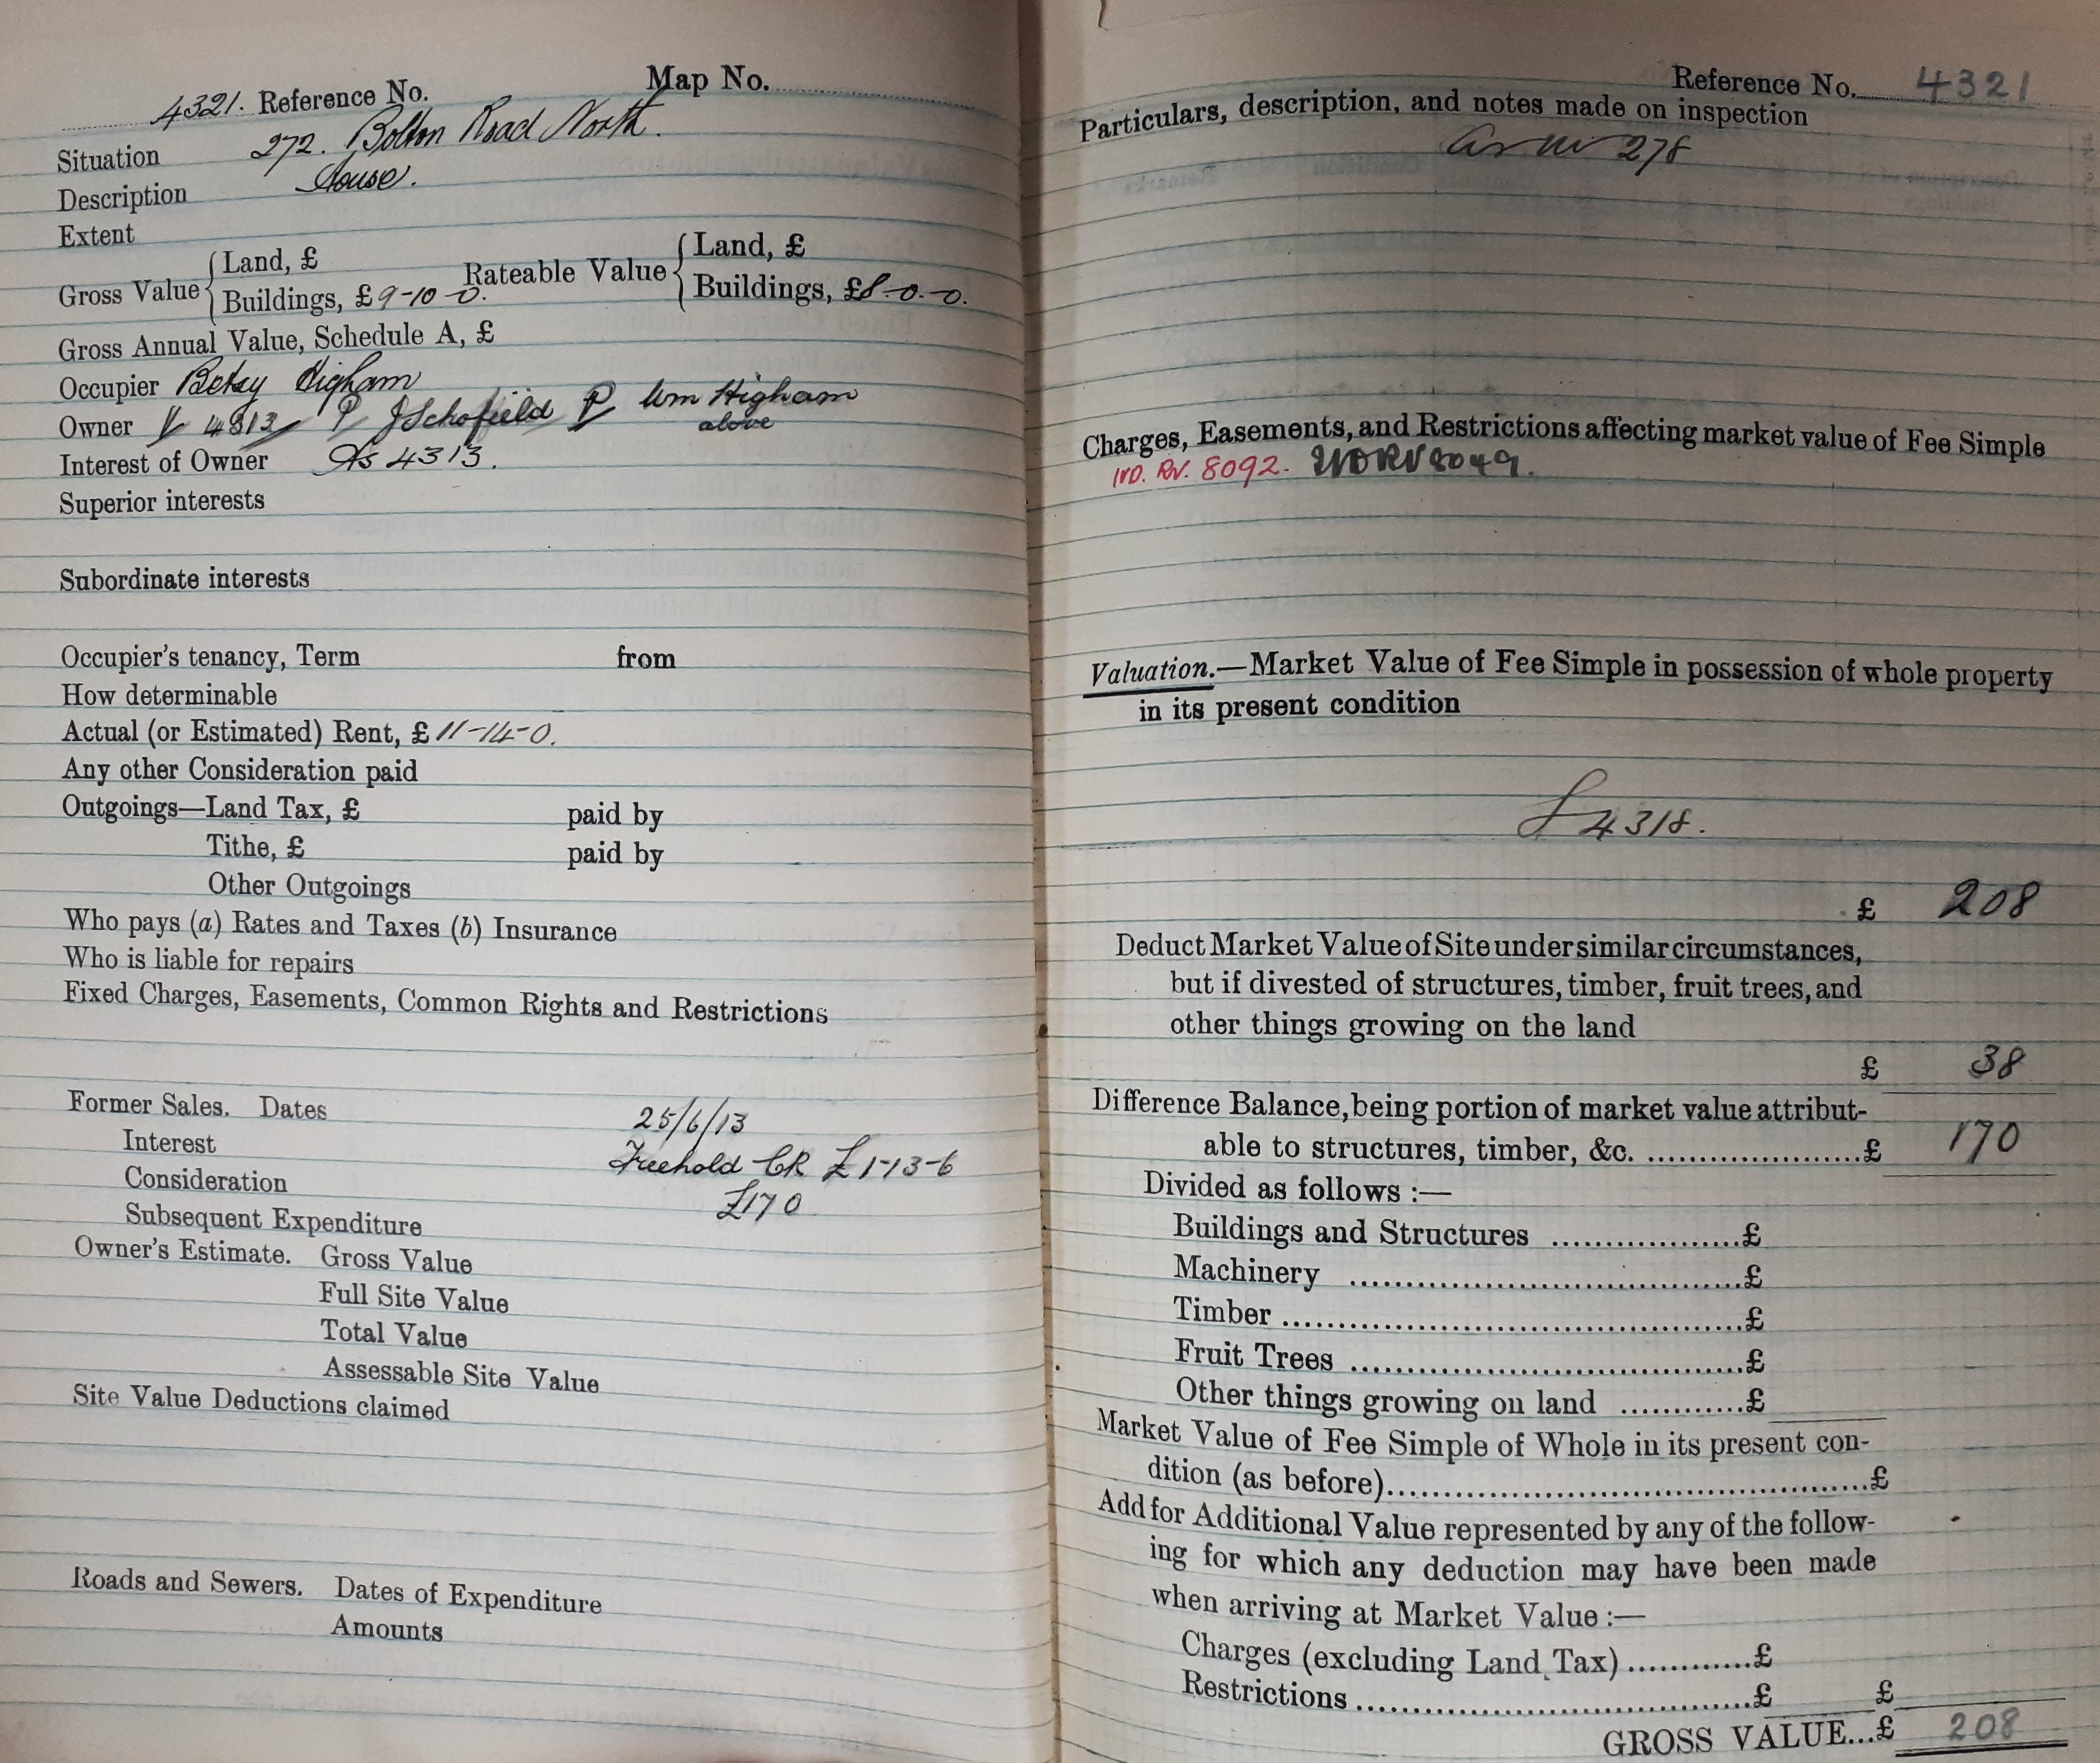 4321. Reference No. Map No.
Situation 272. Bolton Road North.
Description House.
Extent
Gross Value { Land, £ Rateable Value { Land, £
Buildings, £ 9-10-0. Buildings, £8-0-0.
Gross Annual Value, Schedule A, £
Occupier Betsy Higham
Owner 4313 J Schofield Wm Higham
above
Interest of Owner As 4313.
Superior interests
Subordinate interests
Occupier's tenancy, Term from
How determinable
Actual (or Estimated) Rent, £ 11-14-0.
Any other Consideration paid
Outgoings—Land Tax, £ paid by
Tithe, £ paid by
Other Outgoings
Who pays (a) Rates and Taxes (b) Insurance
Who is liable for repairs
Fixed Charges, Easements, Common Rights and Restrictions
Former Sales. Dates 25/6/13
Interest Freehold CR £1-13-6
Consideration £170
Subsequent Expenditure
Owner's Estimate. Gross Value
Full Site Value
Total Value
Assessable Site Value
Site Value Deductions claimed
Roads and Sewers. Dates of Expenditure
Amounts
Reference No. 4321
Particulars, description, and notes made on inspection
278
Charges, Easements, and Restrictions affecting market value of Fee Simple
IVD. RV. 8092.
Valuation.—Market Value of Fee Simple in possession of whole property
in its present condition
4318.
£ 208
Deduct Market Value of Site under similar circumstances,
but if divested of structures, timber, fruit trees, and
other things growing on the land
£ 38
Difference Balance, being portion of market value attribut-
able to structures, timber, &c. ......................£ 170
Divided as follows :—
Buildings and Structures ...................£
Machinery .......................................£
Timber .............................................£
Fruit Trees .......................................£
Other things growing on land ............£
Market Value of Fee Simple of Whole in its present con-
dition (as before)................................................£
Add for Additional Value represented by any of the follow-
ing for which any deduction may have been made
when arriving at Market Value :—
Charges (excluding Land Tax) ............£
Restrictions .......................................£ £
GROSS VALUE...£ 208